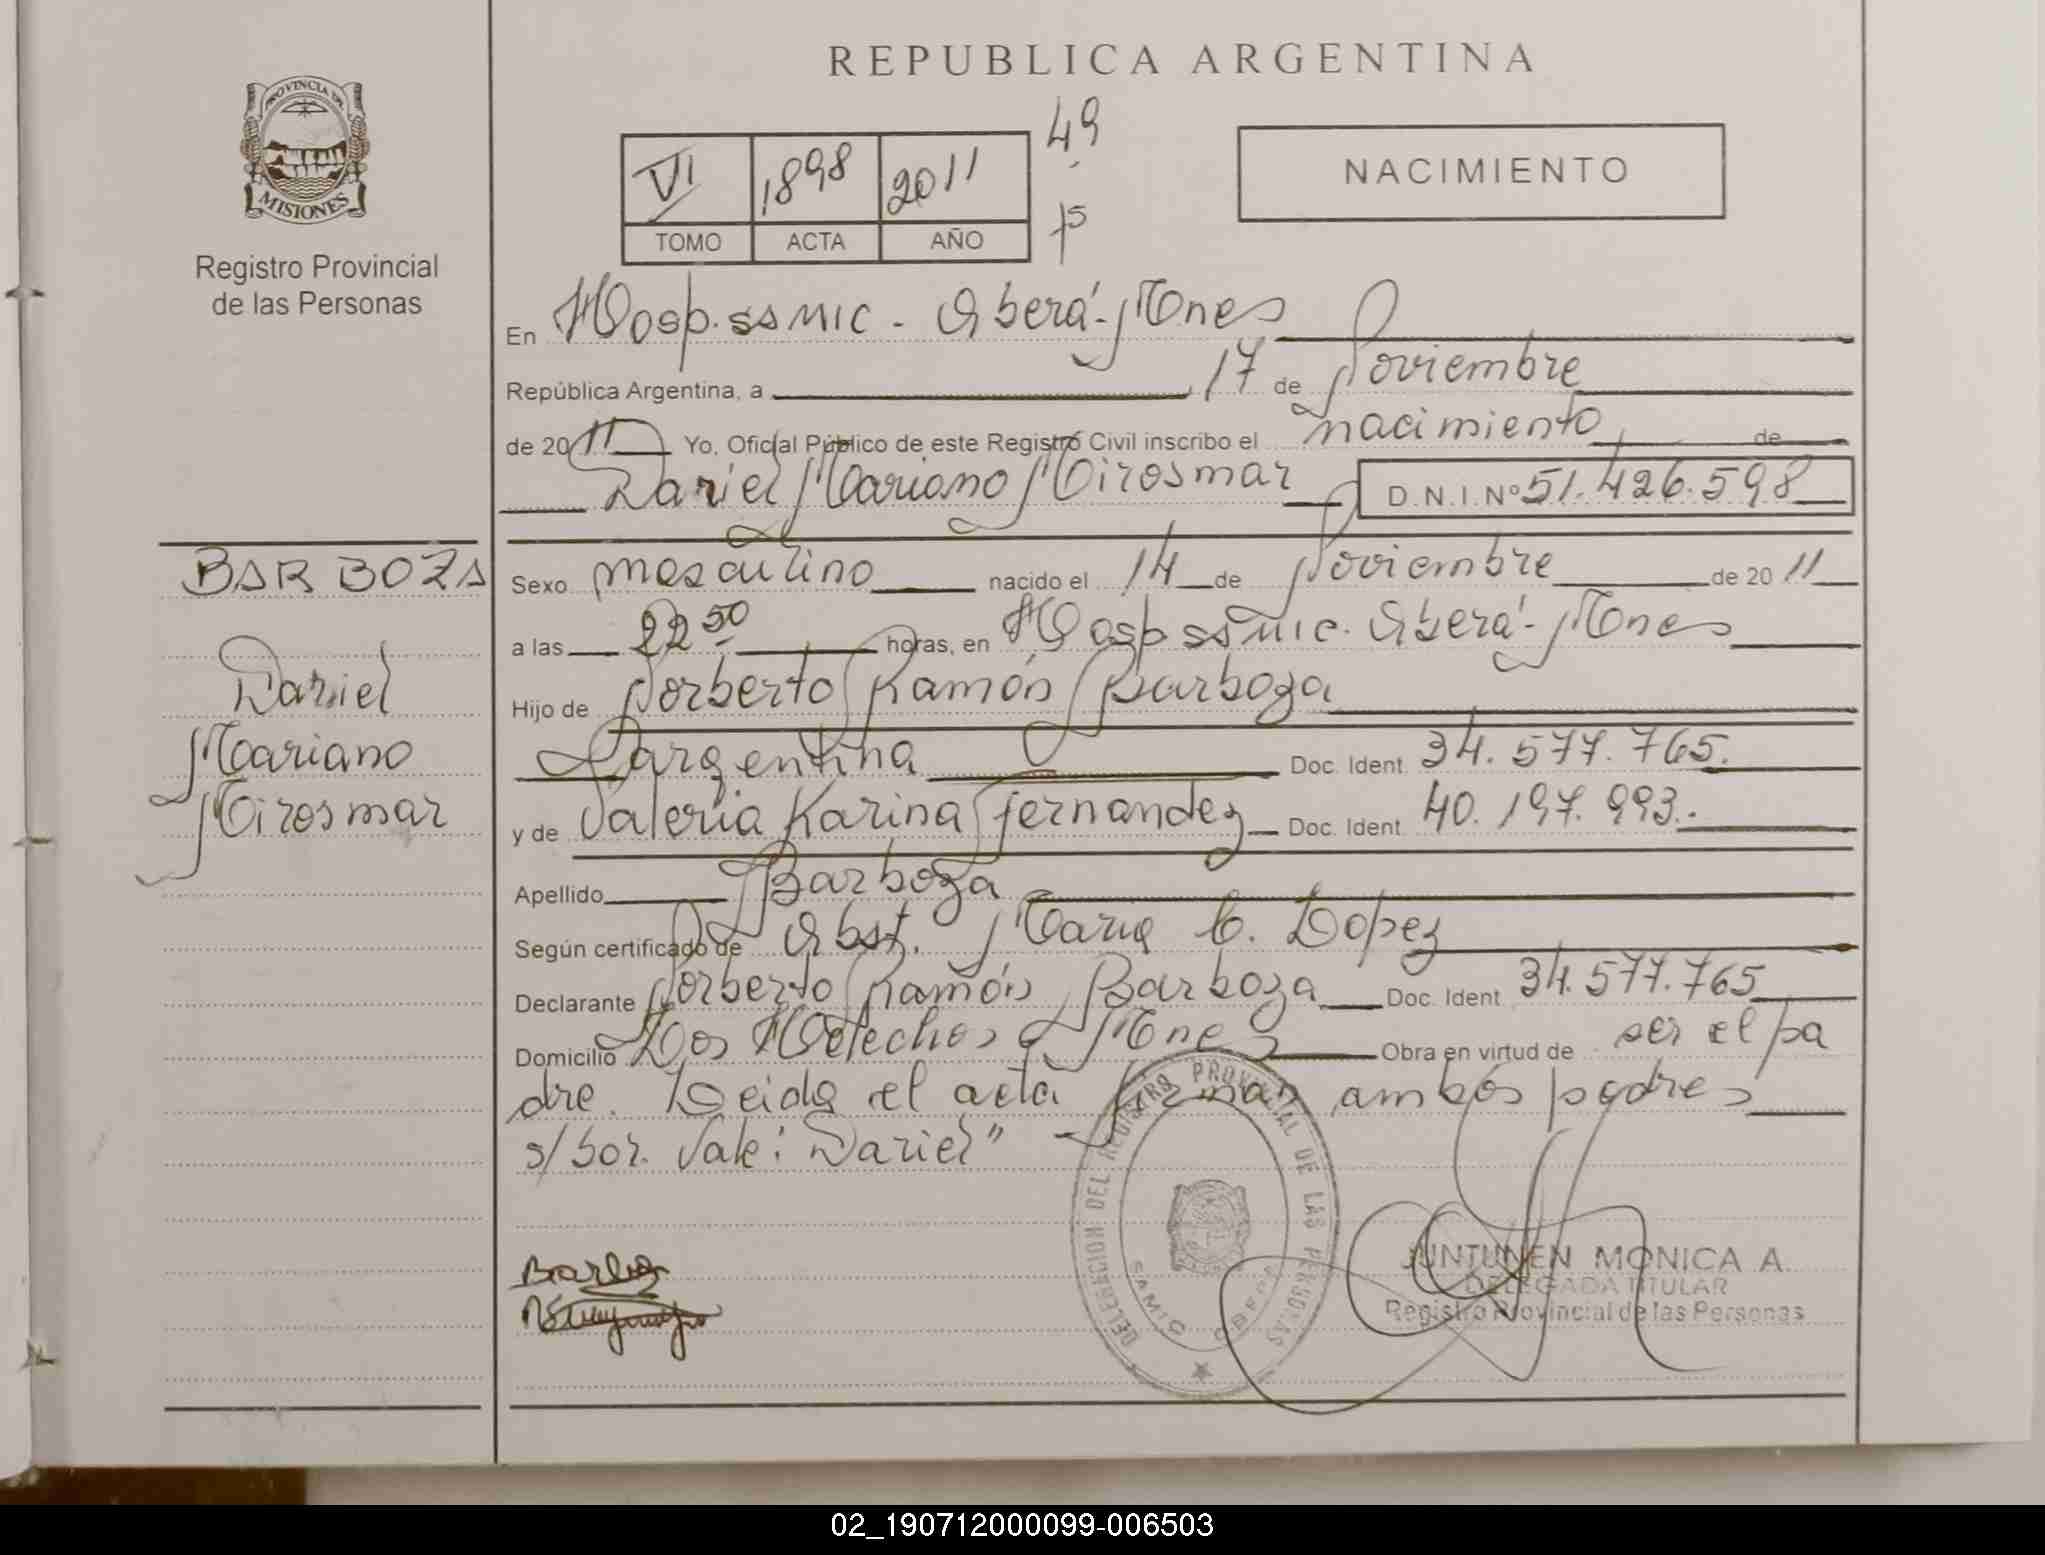 REPUBLICA ARGENTINA
PROVINCIA DE
MISIONES
Registro Provincial
de las Personas
VI 1898 2011
TOMO ACTA AÑO
49
NACIMIENTO
En Hosp. SAMIC - Oberá - Mnes
República Argentina, a 17 de Noviembre
de 2011 Yo, Oficial Público de este Registro Civil inscribo el nacimiento de
Dariel Mariano Mirosmar D.N.I.Nº 51.426.598
BARBOZA
Dariel
Mariano
Mirosmar
Sexo masculino nacido el 14 de Noviembre de 2011
a las 22 50 horas, en Hosp SAMIC. Oberá - Mnes
Hijo de Norberto Ramón Barboza
Argentina Doc. Ident. 34.577.765.
y de Valeria Karina Fernandez Doc. Ident. 40.197.993.
Apellido Barboza
Según certificado de Obst. Maria C. Lopez
Declarante Norberto Ramón Barboza Doc. Ident. 34.577.765
Domicilio Dos Helechos Mnes Obra en virtud de ser el pa
dre. Leida el acta firman ambos padres
s/bor. Vale: Dariel"
DELEGACION DEL REGISTRO PROVINCIAL DE LAS PERSONAS
SAMIC OBERA
JUNTUNEN MONICA A.
DELEGADA TITULAR
Registro Provincial de las Personas
02_190712000099-006503